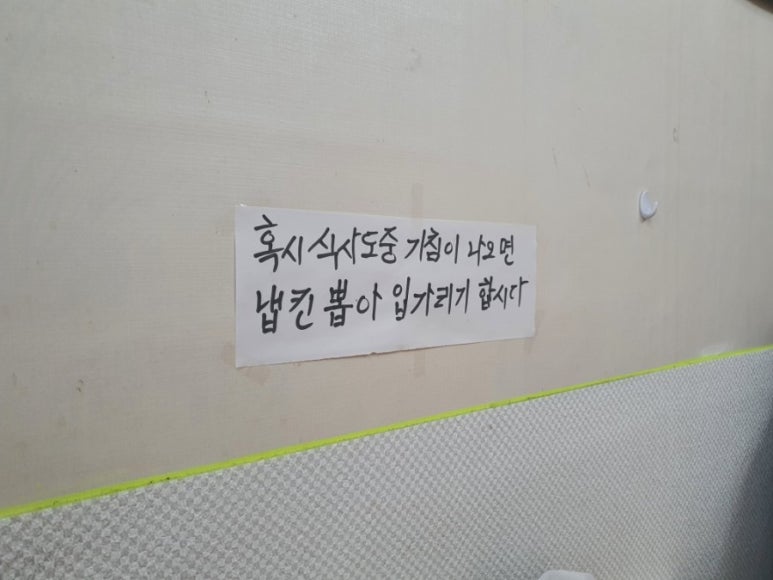 혹시 식사도중 기침이 나오면
냅킨 뽑아 입가리기 합시다